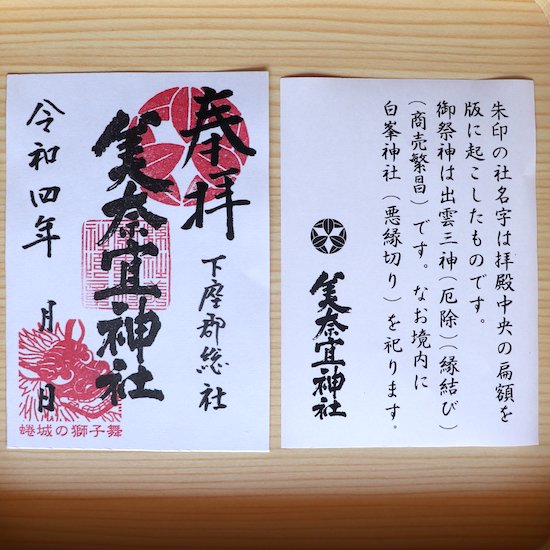 奉拝
下座郡総社
美奈宜神社
令和四年 月 日
蜷城の獅子舞
朱印の社名字は拝殿中央の扁額を
版に起こしたものです。
御祭神は出雲三神（厄除）（縁結び）
（商売繁昌）です。なお境内に
白峯神社（悪縁切り）を祀ります。
美奈宜神社